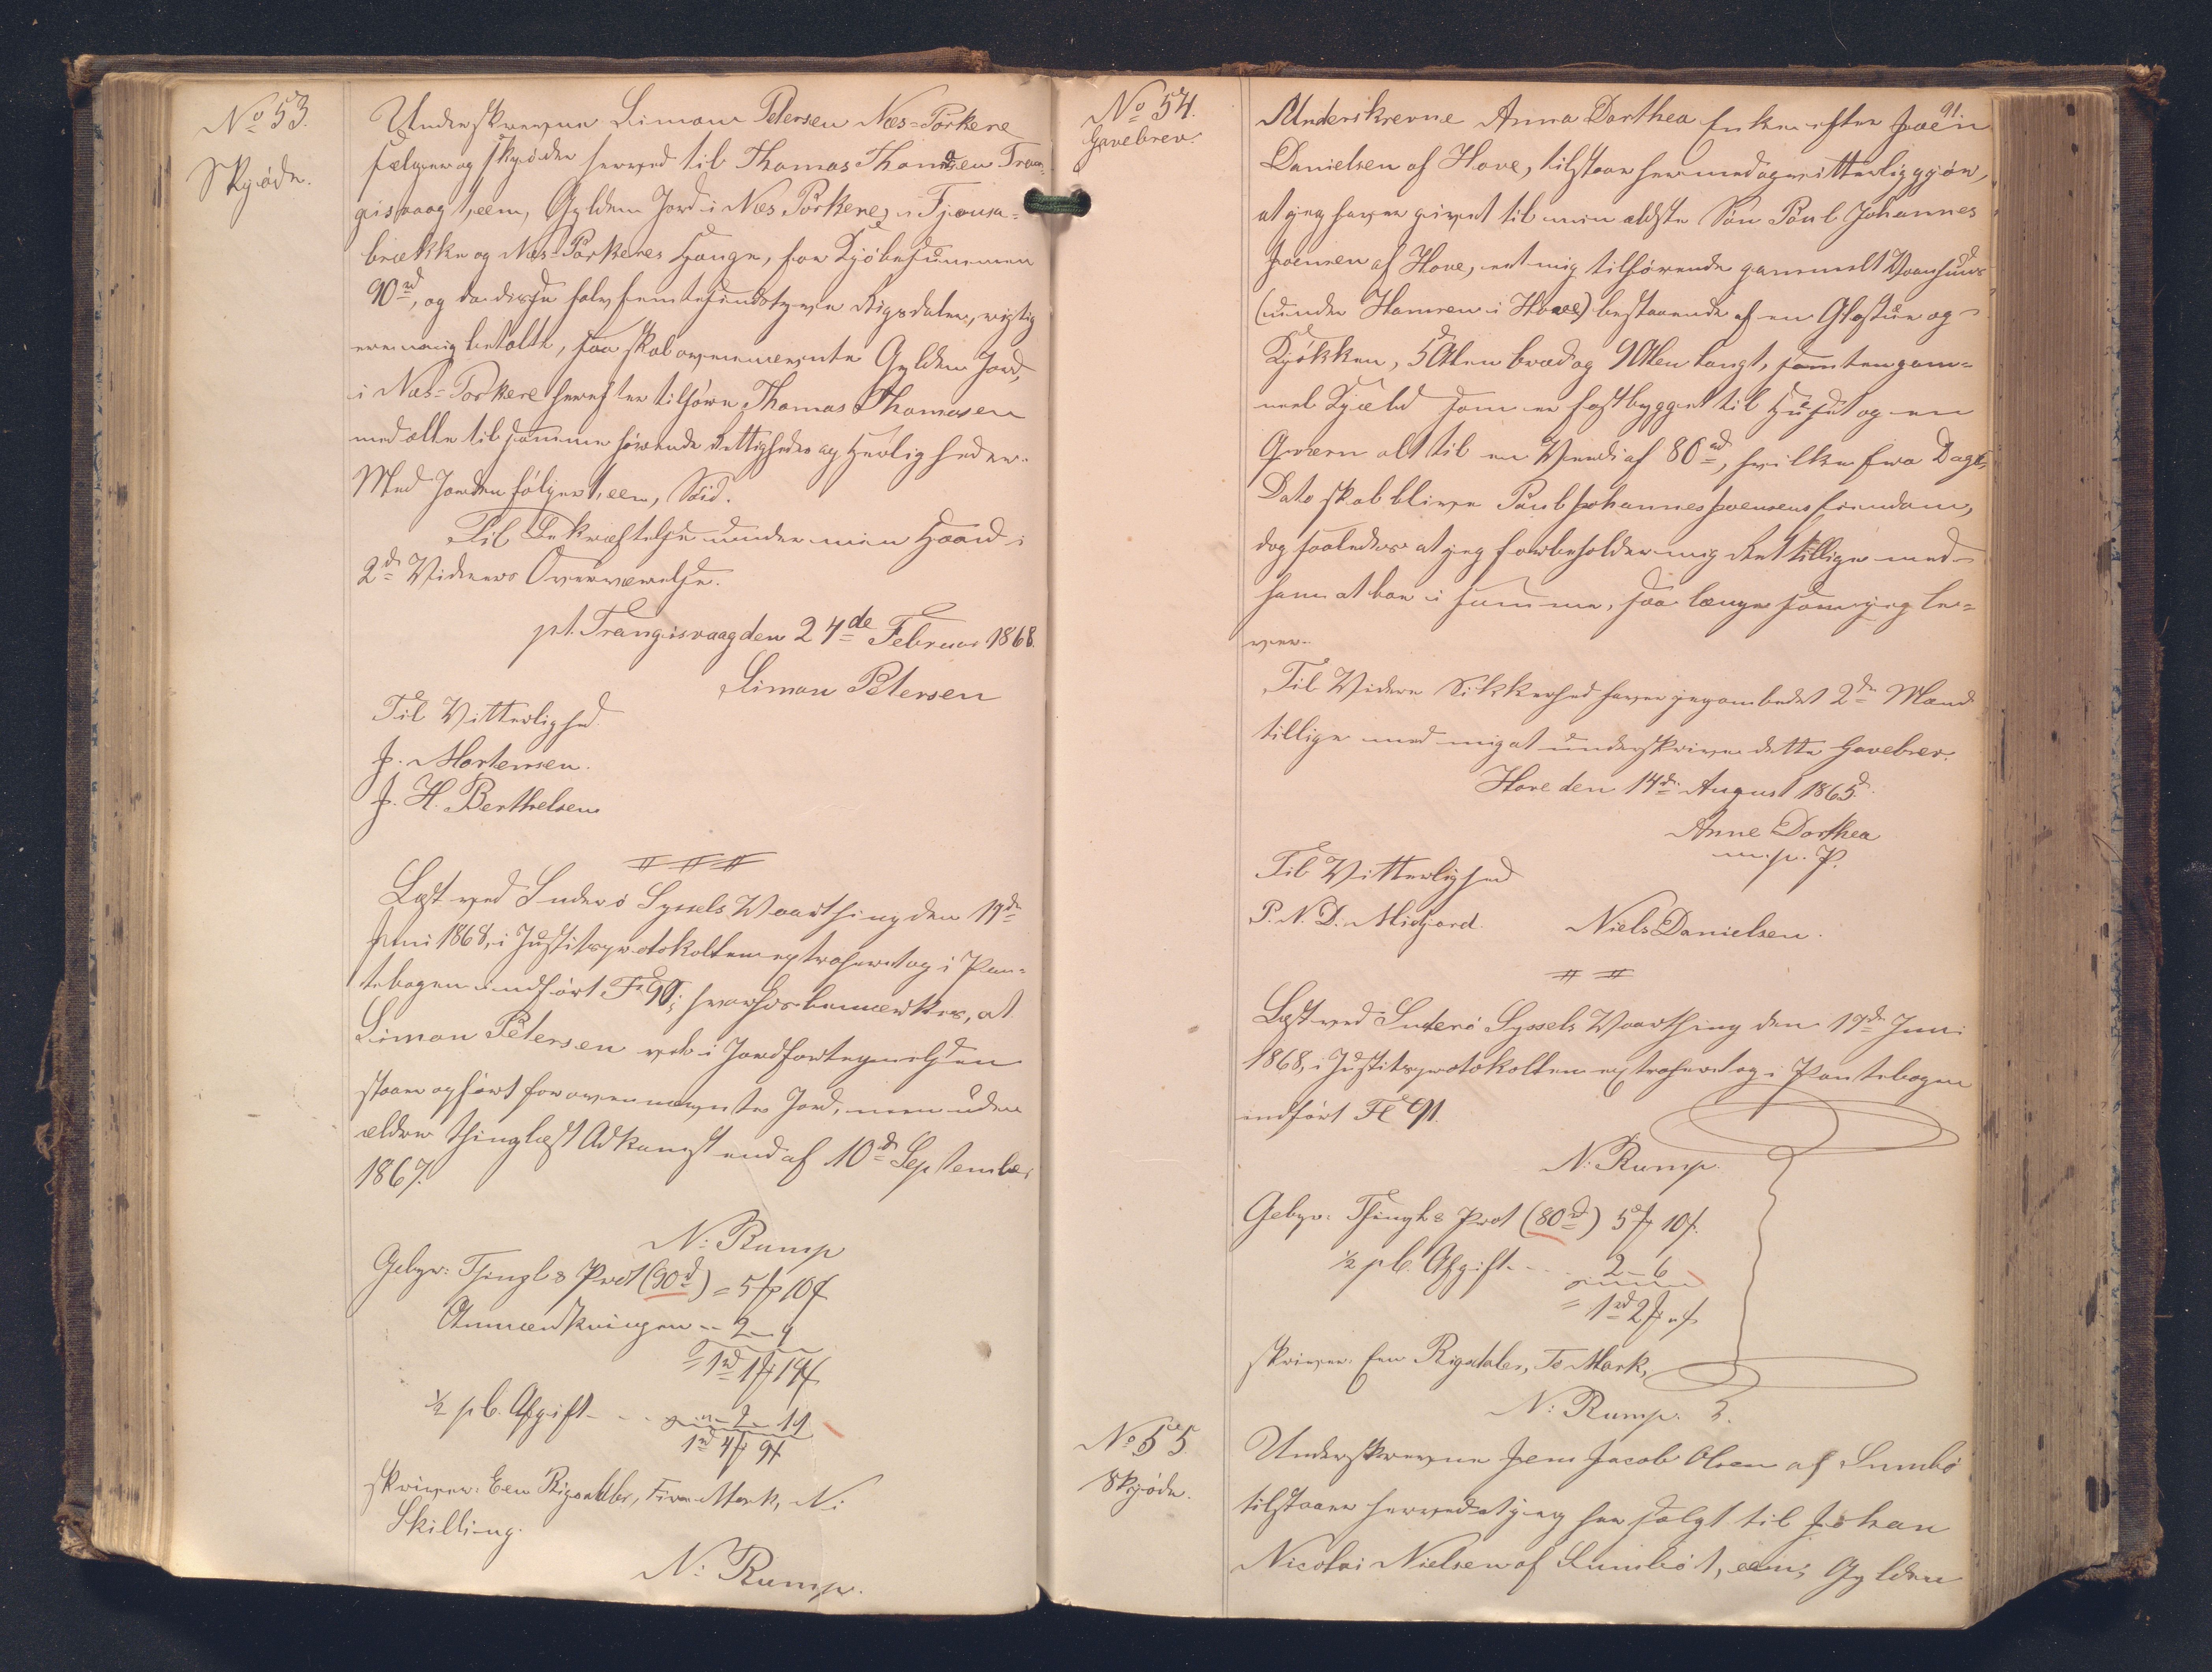 No 53.
Skjøde.
Underskrevne Simon Petersen Næs-Porkere
sælger og skjøder herved til Thomas Thomsen Tran-
gisvaag 1, een, Gylden Jord i Næs Porkere,
brække og Næs-Porkeres Hauge, for Kjøbesummen
90 rd, og da disse halvfemtesindstyve Rigsdaler, rigtig
er mig betalte, saa skal ovennævnte Gylden Jord,
i Næs-Porkere herefter tilhøre Thomas Thomasen
med alle til samme hørende Rettigheder og Herligheder.
Med Jorden følger 1, een, Soid.
Til Bekræftelse under min Haand i
2de Vidners Overværelse.
pt. Trangisvaag den 24de Februar 1868.
Simon Petersen
Til Vitterlighed
J. Mortensen.
J. H. Berthelsen
Læst ved Suderø Syssels Vaarthing den 19de
Juni 1868, i Justitsprotokollen extraheret og i Pan-
tebogen indført Fol 90; hvorhos bemærkes, at
Simon Petersen vel i Jordfortegnelsen
staaer opført for ovennævnte Jord, men uden
ældre thinglæst Adkomst end af 10de September
1867.
N: Rump
Gebyr: Thingl & Prot (90 rd) = 5 mk 10 s
Anmærkningen - 2 - 9
= 1 rd 1 mk 14 s
½ pC. Afgift - - - 2 - 11
1 rd 4 mk 9 s
skriver: Een Rigsdaler, Fire Mark, Ni
Skilling.
N: Rump.
No 54.
Gavebrev.
91.
Underskrevne Anna Dorthea Enke efter Joen
Danielsen af Hove, tilstaar hermed og vitterliggjør,
at jeg haver givet til min ældste Søn Poul Johannes
Joensen af Hove, et mig tilhørende gammelt Vaanhuus
(under Hamren i Hove) bestaaende af en Glastue og
Kjøkken, 5 Alen bred og 9 Alen langt, samt en gam-
mel Kjæld som er fastbygget til Huset og en
Qværn alt til en Værdi af 80 rd, hvilke fra Dags
Dato skal blive Poul Johannes Joensens Eiendom,
dog saaledes at jeg forbeholder mig Ret tillige med
ham at boe i samme, saa længe som jeg le-
ver.
Til Videre Sikkerhed haver jeg ombedet 2de Mænd
tillige med mig at underskrive dette Gavebrev.
Hove den 14de August 1865.
Anne Dorthea
m. p. P.
Til Vitterlighed
P. N. D. Midjord. Niels Danielsen.
Læst ved Suderø Syssels Vaarthing den 19de Juni
1868, i Justitsprotokollen extraheret og i Pantebogen
indført Fol 91.
N: Rump.
Gebyr: Thingl & Prot (80 rd) 5 mk 10 s.
½ pC. Afgift - - - 2 - 6
= 1 rd 2 mk " s
skriver: Een Rigsdaler, To Mark,
N: Rump.
No 55
Skjøde.
Underskrevne Jens Jacob Olsen af Sumbø
tilstaaer herved at jeg har solgt til Johan
Nicolai Nielsen af Sumbø 1, een, Gylden